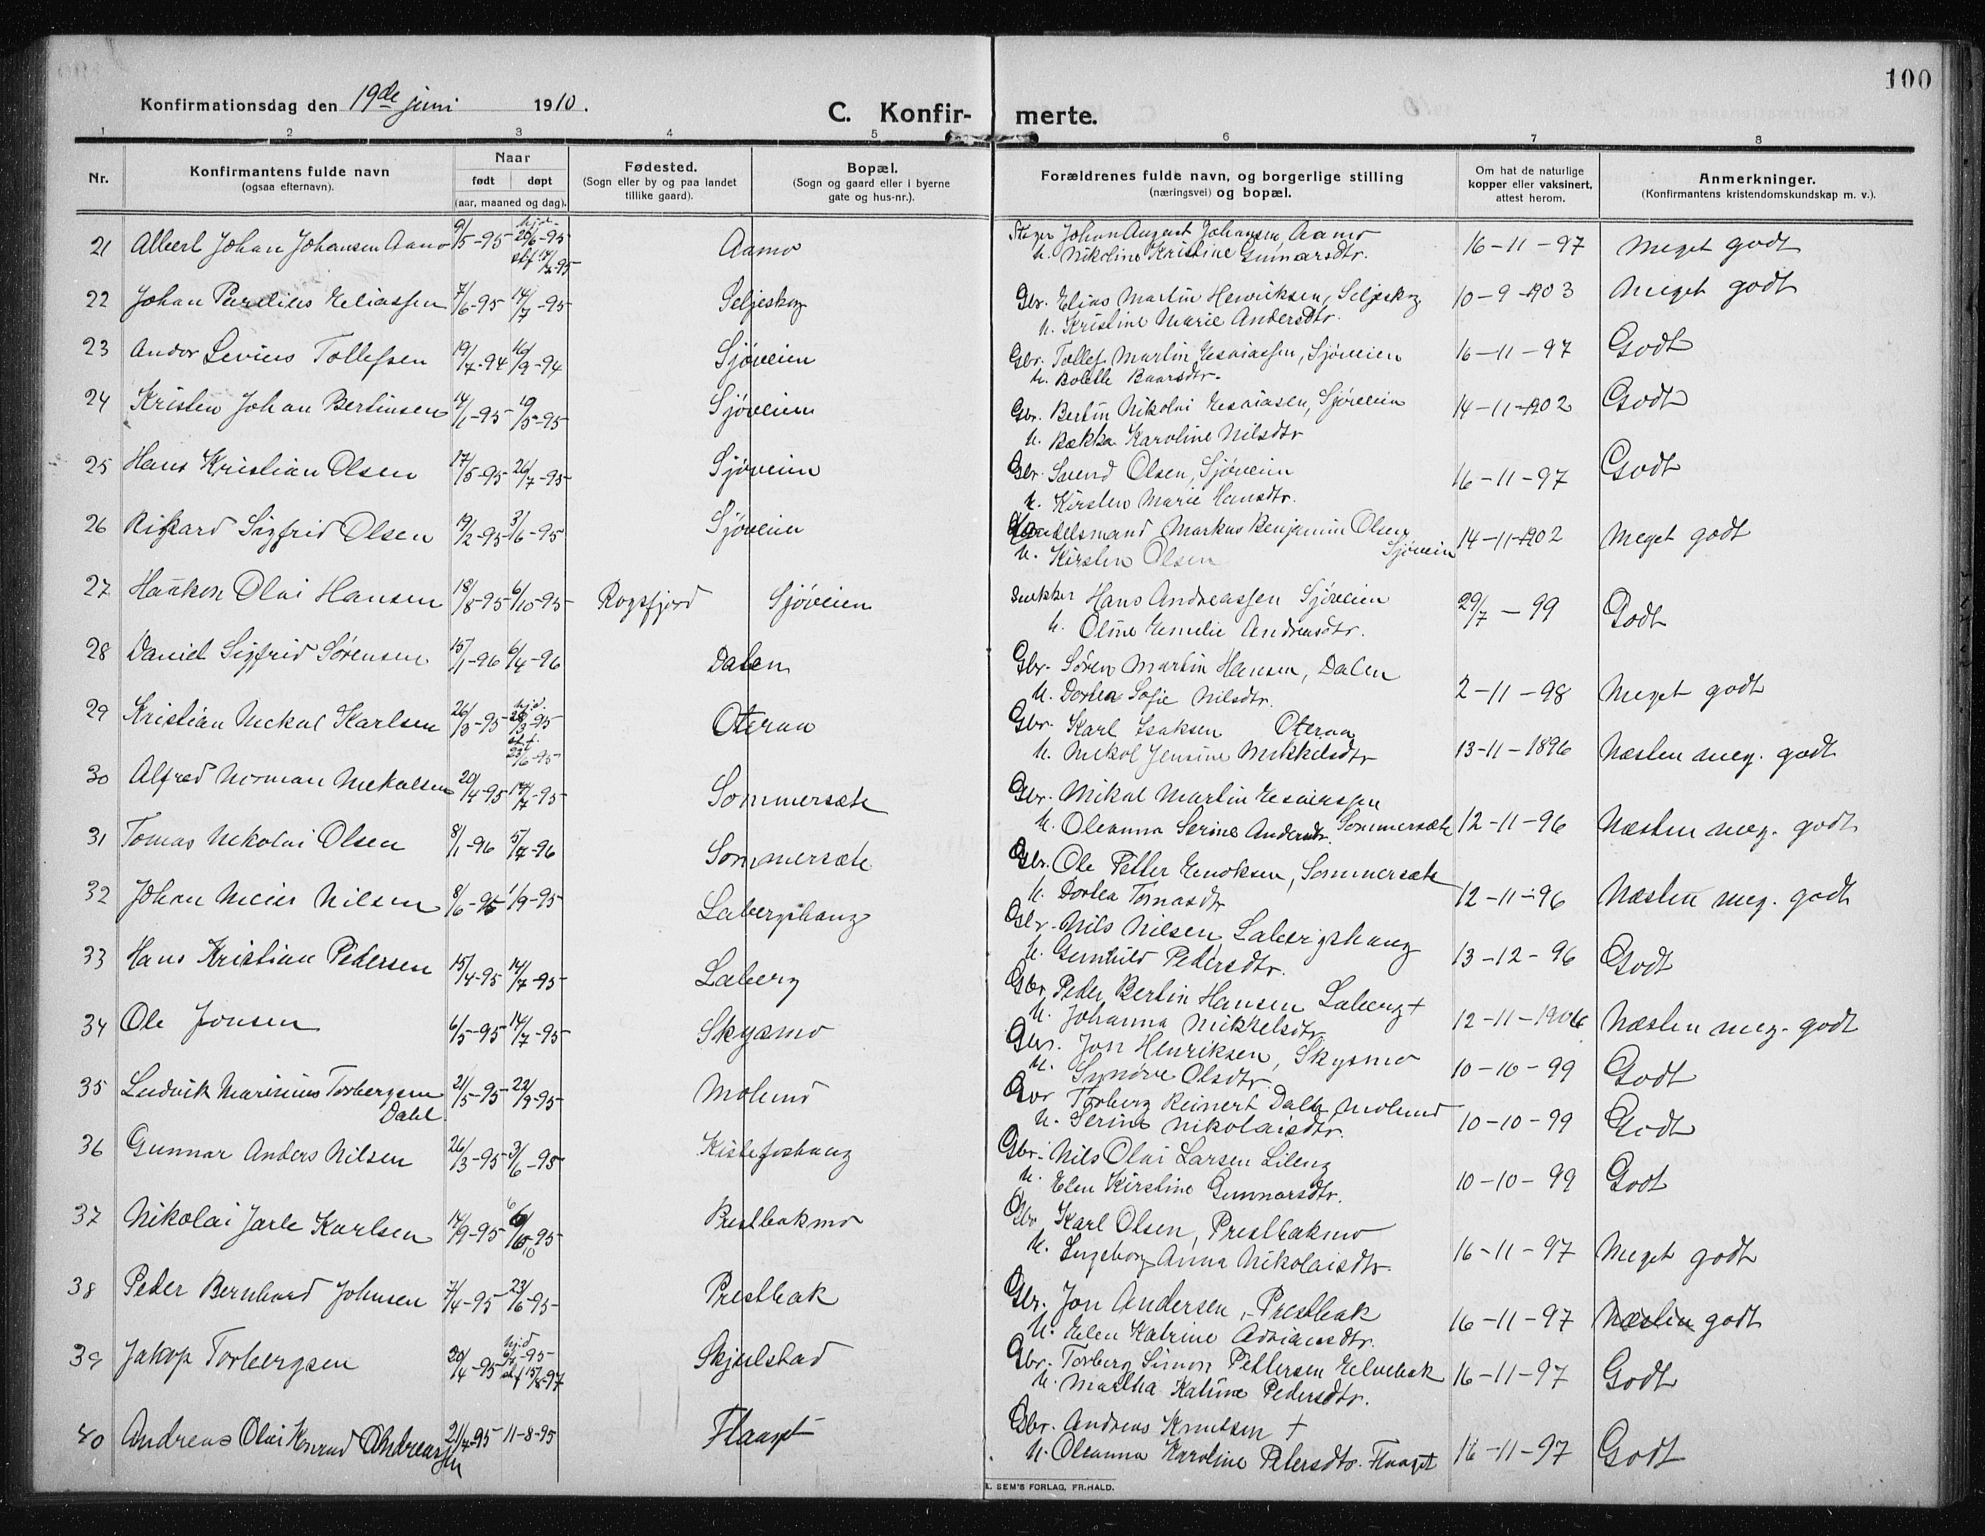 100
Konfirmationsdag den 19de juni 1910.
C. Konfir- merte.
1 2 3 4 5 6 7 8
Nr.
Konfirmantens fulde navn
(ogsaa efternavn).
Naar
født døpt
(aar, maaned og dag).
Fødested.
(Sogn eller by og paa landet
tillike gaard).
Bopæl.
(Sogn og gaard eller i byerne
gate og hus-nr.).
Forældrenes fulde navn, og borgerlige stilling
(næringsvei) og bopæl.
Om hat de naturlige
kopper eller vaksinert,
attest herom.
Anmerkninger.
(Konfirmantens kristendomskundskap m. v.).
21 Albert Johan Johansen Aamo 9/5-95 hjd. 20/6-95 stf. 14/7-95 Aamo Johan August Johansen, Aamo 16-11-97 Meget godt
u. Nikoline Kristine Gunnarsdtr.
22 Johan Parelius Eliassen 7/6-95 14/7-95 Seljeskog Gbr. Elias Martin Henriksen, Seljeskog 10-9-1903 Meget godt
u. Kristine Marie Andersdtr.
23 Andor Levius Tollefsen 19/7-94 16/9-94 Sjøveien Gbr. Tollef Martin Esaiassen, Sjøveien 16-11-97 Godt
u. Bolette Baarsdtr.
24 Kristen Johan Bertinsen 14/1-95 19/5-95 Sjøveien Gbr. Bertin Nikolai Esaiasen, Sjøveien 14-11-1902 Godt
u. Bækka Karoline Nilsdtr
25 Hans Kristian Olsen 17/5-95 26/7-95 Sjøveien Gbr. Svend Olsen, Sjøveien 16-11-97 Godt
u. Kirsten Marie Hansdtr.
26 Rikard Sigfrid Olsen 19/2-95 3/6-95 Sjøveien Handelsmand Markus Benjamin Olsen 14-11-1902 Meget godt
u. Kirsten Olsen Sjøveien
27 Haakon Olai Hansen 18/8-95 6/10-95 Rogsfjord Sjøveien Snekker Hans Andreassen Sjøveien 29/7-99 Godt
u. Oline Emelie Andreasdtr.
28 Daniel Sigfrid Sørensen 15/1-96 6/4-96 Dalen Gbr. Søren Martin Hansen, Dalen 2-11-98 Meget godt
u. Dortea Sofie Nilsdtr.
29 Kristian Mekal Karlsen 26/3-95 hjd. 28/3-95 stf. 23/6-95 Oteraa Gbr. Karl Isaksen Oteraa 13-11-1896 Næsten meg. godt
u. Mekol Jensine Mikkelsdtr
30 Alfred Norman Mekalsen 20/4-95 14/7-95 Sommersæte Gbr. Mikal Martin Esaiassen
u. Oleanna Serine Andersdtr. Sommersæte 12-11-96 Næsten meg. godt
31 Tomas Nekolai Olsen 8/1-96 5/4-96 Sommersæte Gbr. Ole Petter Enoksen, Sommersæte
u. Dortea Tomasdtr 12-11-96 Næsten meg. godt
32 Johan Meier Nilsen 8/6-95 1/9-95 Labergshaug Gbr. Nils Nilsen, Labergshaug 13-12-96 Godt
u. Gunhild Pedersdtr.
33 Hans Kristian Pedersen 15/4-95 14/7-95 Laberg Gbr. Peder Bertin Hansen Laberg + 12-11-1906 Næsten meg. godt
u. Johanna Mikkelsdtr
34 Ole Jonsen 6/5-95 14/7-95 Skysmo Gbr. Jon Henriksen, Skysmo 10-10-99 Godt
u. Synøve Olsdtr.
35 Ludvik Marinius Torbergsen 21/5-95 22/9-95 Molund Gbr Torberg Reinert Dahl, Molund 10-10-99 Godt
Dahl. u. Serine Nikolaisdtr.
36 Gunnar Anders Nilsen 26/3-95 3/6-95 Kistefoshaug Gbr. Nils Olai Larsen Lileng 10-10-99 Godt
u. Elen Kirstine Gunnarsdtr.
37 Nikolai Jarle Karlsen 14/9-95 6/10-95 Prestbakmo Gbr Karl Olsen, Prestbakmo 16-11-97 Meget godt
u. Ingeborg Anna Nikolaisdtr.
38 Peder Bernhard Johnsen 7/4-95 23/6-95 Prestbak Gbr. Jon Andersen, Prestbak 16-11-97 Næsten godt
u. Elen Katrine Adriansdtr.
39 Jakop Torbergsen 20/4-95 hjd -95 stf 15/8-97 Skjelstad Gbr. Torberg Simon Pettersen Elvebak 16-11-97 Godt
u. Martha Katrine Pedersdtr.
40 Andreas Olai Konrad Andreassen 21/4-95 11-8-95 Flaaget Gbr. Andreas Knutsen + 16-11-97 Godt
u. Oleanna Karoline Petersdtr. Flaaget
SEM'S FORLAG, FR.HALD.